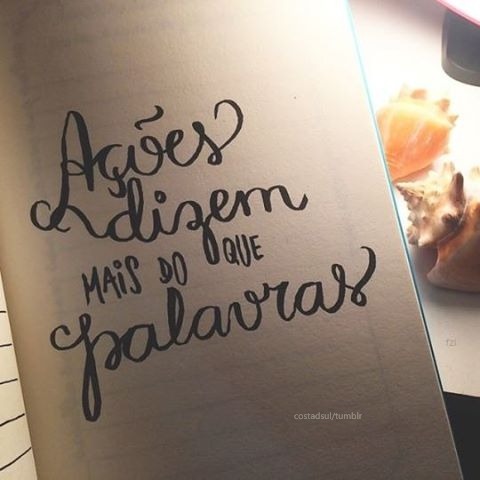 Ações
dizem
MAIS DO QUE
palavras
costadsul/tumblr
fzl